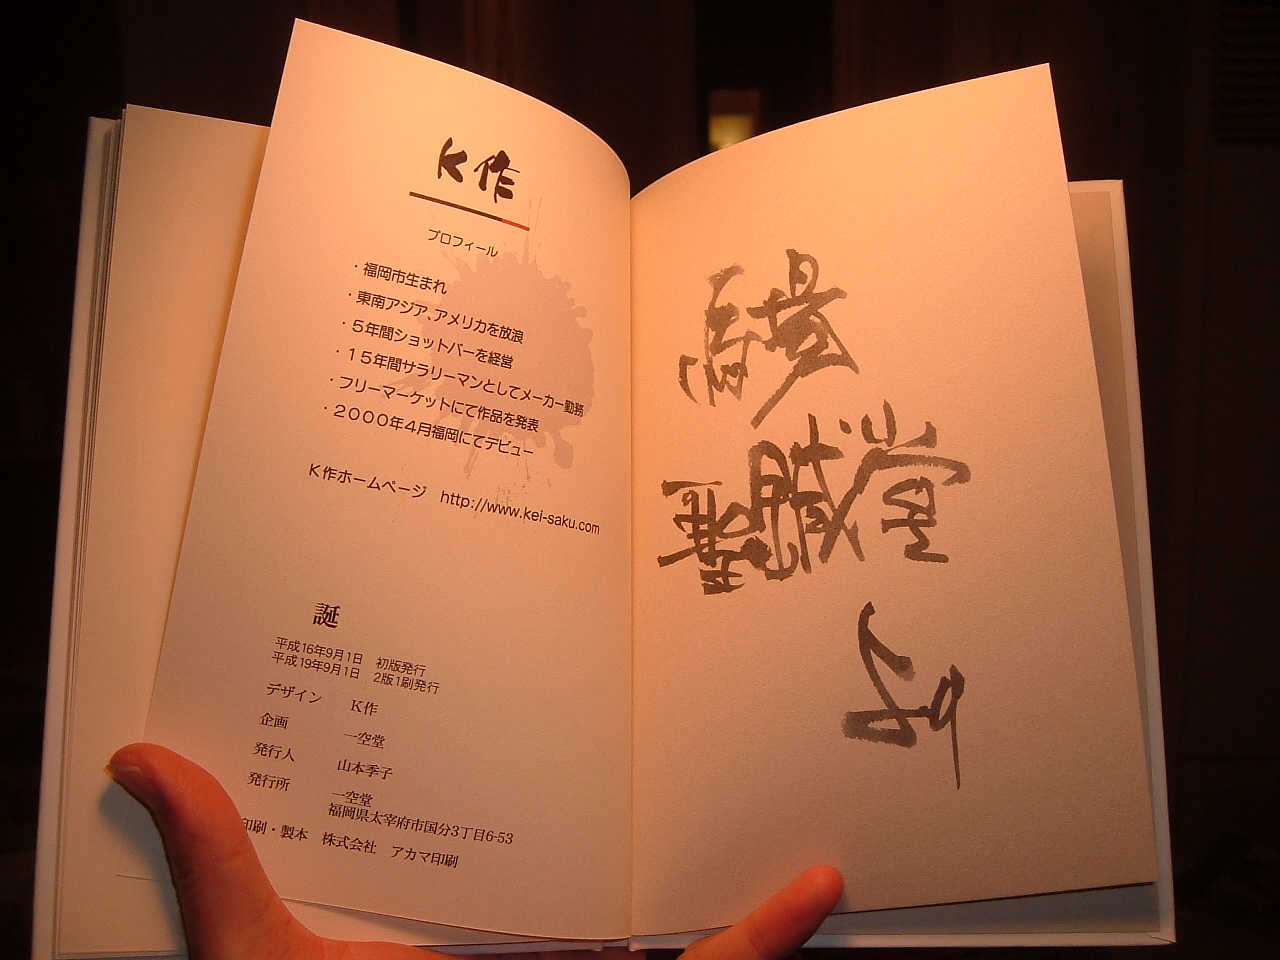 K作
プロフィール
・福岡市生まれ
・東南アジア、アメリカを放浪
・５年間ショットバーを経営
・１５年間サラリーマンとしてメーカー勤務
・フリーマーケットにて作品を発表
・２０００年４月福岡にてデビュー
K作ホームページ　http://www.kei-saku.com
誕
平成16年9月1日　初版発行
平成19年9月1日　2版1刷発行
デザイン　K作
企画　一空堂
発行人　山本季子
発行所　一空堂
福岡県太宰府市国分3丁目6-53
印刷・製本　株式会社　アカマ印刷